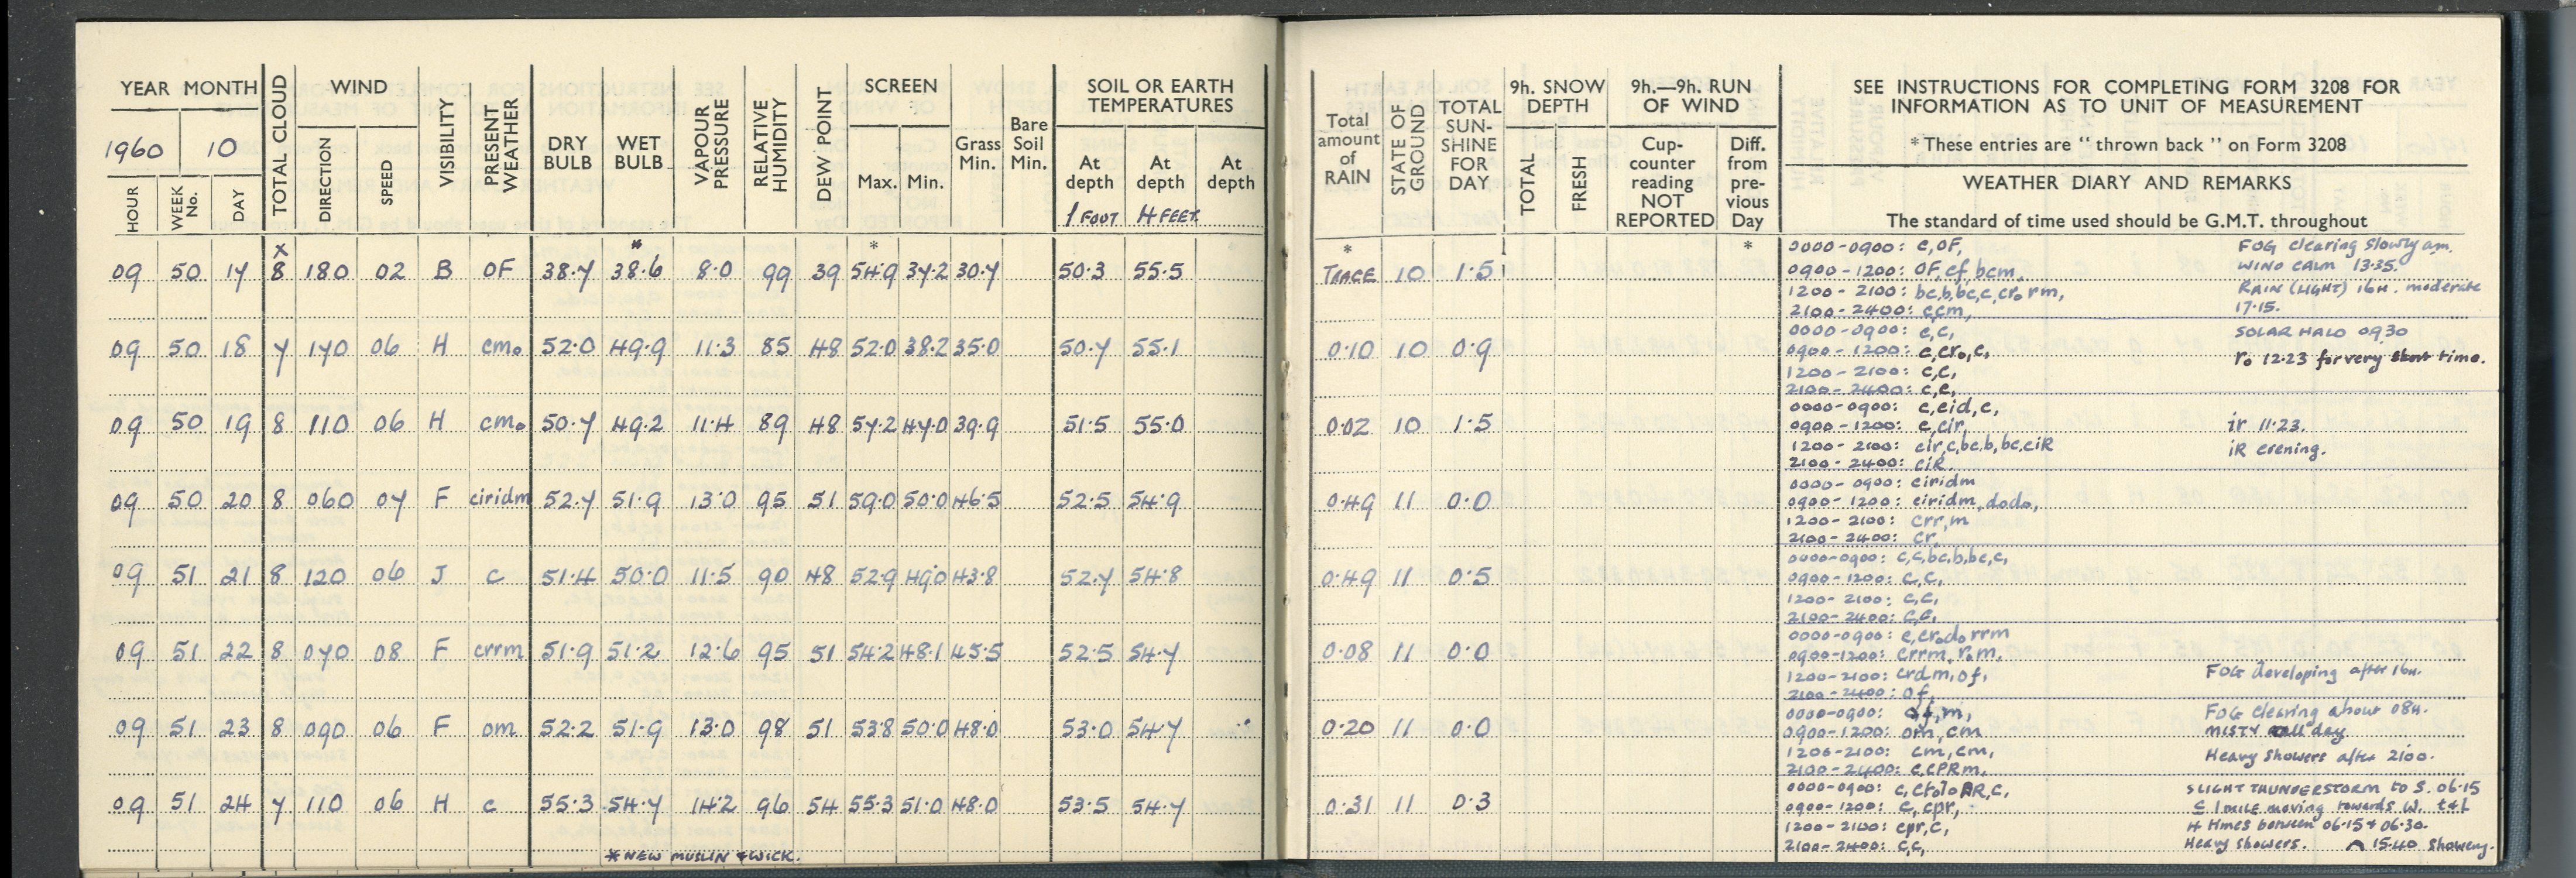 YEAR MONTH
1960 10
HOUR
WEEK No.
DAY
TOTAL CLOUD
WIND
DIRECTION
SPEED
VISIBILITY
PRESENT WEATHER
DRY BULB
WET BULB
VAPOUR PRESSURE
RELATIVE HUMIDITY
DEW POINT
SCREEN
Max. Min.
Grass Min.
Bare Soil Min.
SOIL OR EARTH TEMPERATURES
At depth 1 FOOT
At depth 4 FEET
At depth
Total amount of RAIN
STATE OF GROUND
TOTAL SUN-SHINE FOR DAY
9h. SNOW DEPTH
TOTAL
FRESH
9h.—9h. RUN OF WIND
Cup-counter reading NOT REPORTED
Diff. from pre-vious Day
SEE INSTRUCTIONS FOR COMPLETING FORM 3208 FOR
INFORMATION AS TO UNIT OF MEASUREMENT
* These entries are "thrown back" on Form 3208
WEATHER DIARY AND REMARKS
The standard of time used should be G.M.T. throughout
x * * * *
09 50 17 8 180 02 B OF 38.7 38.6 8.0 99 39 54.9 37.2 30.7 50.3 55.5 TRACE 10 1.5
0000-0900: c,OF, FOG clearing slowly am.
0900-1200: OF,cf,bcm, WIND CALM 13.35.
1200-2100: bc,b,bc,c,cr₀rm, RAIN (LIGHT) 16H. moderate
2100-2400: c,cm, 17.15.
09 50 18 7 170 06 H cm₀ 52.0 49.9 11.3 85 48 52.0 38.2 35.0 50.7 55.1 0.10 10 0.9
0000-0900: c,c, SOLAR HALO 0930
0900-1200: c,cr₀,c, r₀ 12.23 for very short time.
1200-2100: c,c,
2100-2400: c,c,
09 50 19 8 110 06 H cm₀ 50.7 49.2 11.4 89 48 57.2 47.0 39.9 51.5 55.0 0.02 10 1.5
0000-0900: c,cid,c,
0900-1200: c,cir, ir 11.23.
1200-2100: cir,c,bc,b,bc,ciR iR evening.
2100-2400: ciR.
09 50 20 8 060 07 F ciridm 52.7 51.9 13.0 95 51 59.0 50.0 46.5 52.5 54.9 0.49 11 0.0
0000-0900: ciridm
0900-1200: ciridm,dodo,
1200-2100: crr,m
2100-2400: cr,
09 51 21 8 120 06 J c 51.4 50.0 11.5 90 48 52.9 49.0 43.8 52.7 54.8 0.49 11 0.5
0000-0900: c,c,bc,b,bc,c,
0900-1200: c,c,
1200-2100: c,c,
2100-2400: c,c,
09 51 22 8 070 08 F crrm 51.9 51.2 12.6 95 51 54.2 48.1 45.5 52.5 54.7 0.08 11 0.0
0000-0900: c,cr₀d₀rrm
0900-1200: crrm,r₀m,
1200-2100: crdm,of, FOG developing after 16H.
2100-2400: of,
09 51 23 8 090 06 F om 52.2 51.9 13.0 98 51 53.8 50.0 48.0 53.0 54.7 0.20 11 0.0
0000-0900: of,m, FOG clearing about 08H.
0900-1200: om,cm MISTY all day
1200-2100: cm,cm, Heavy showers after 2100.
2100-2400: c,cPRm,
09 51 24 7 110 06 H c 55.3 54.7 14.2 96 54 55.3 51.0 48.0 53.5 54.7 0.31 11 0.3
0000-0900: c, SLIGHT THUNDERSTORM to S. 06.15
0900-1200: c,cpr, 1 mile moving towards W. t&l
1200-2100: cpr,c, 4 times between 06.15 & 06.30.
2100-2400: c,c, Heavy showers. 15.40 Showery.
* NEW MUSLIN & WICK.